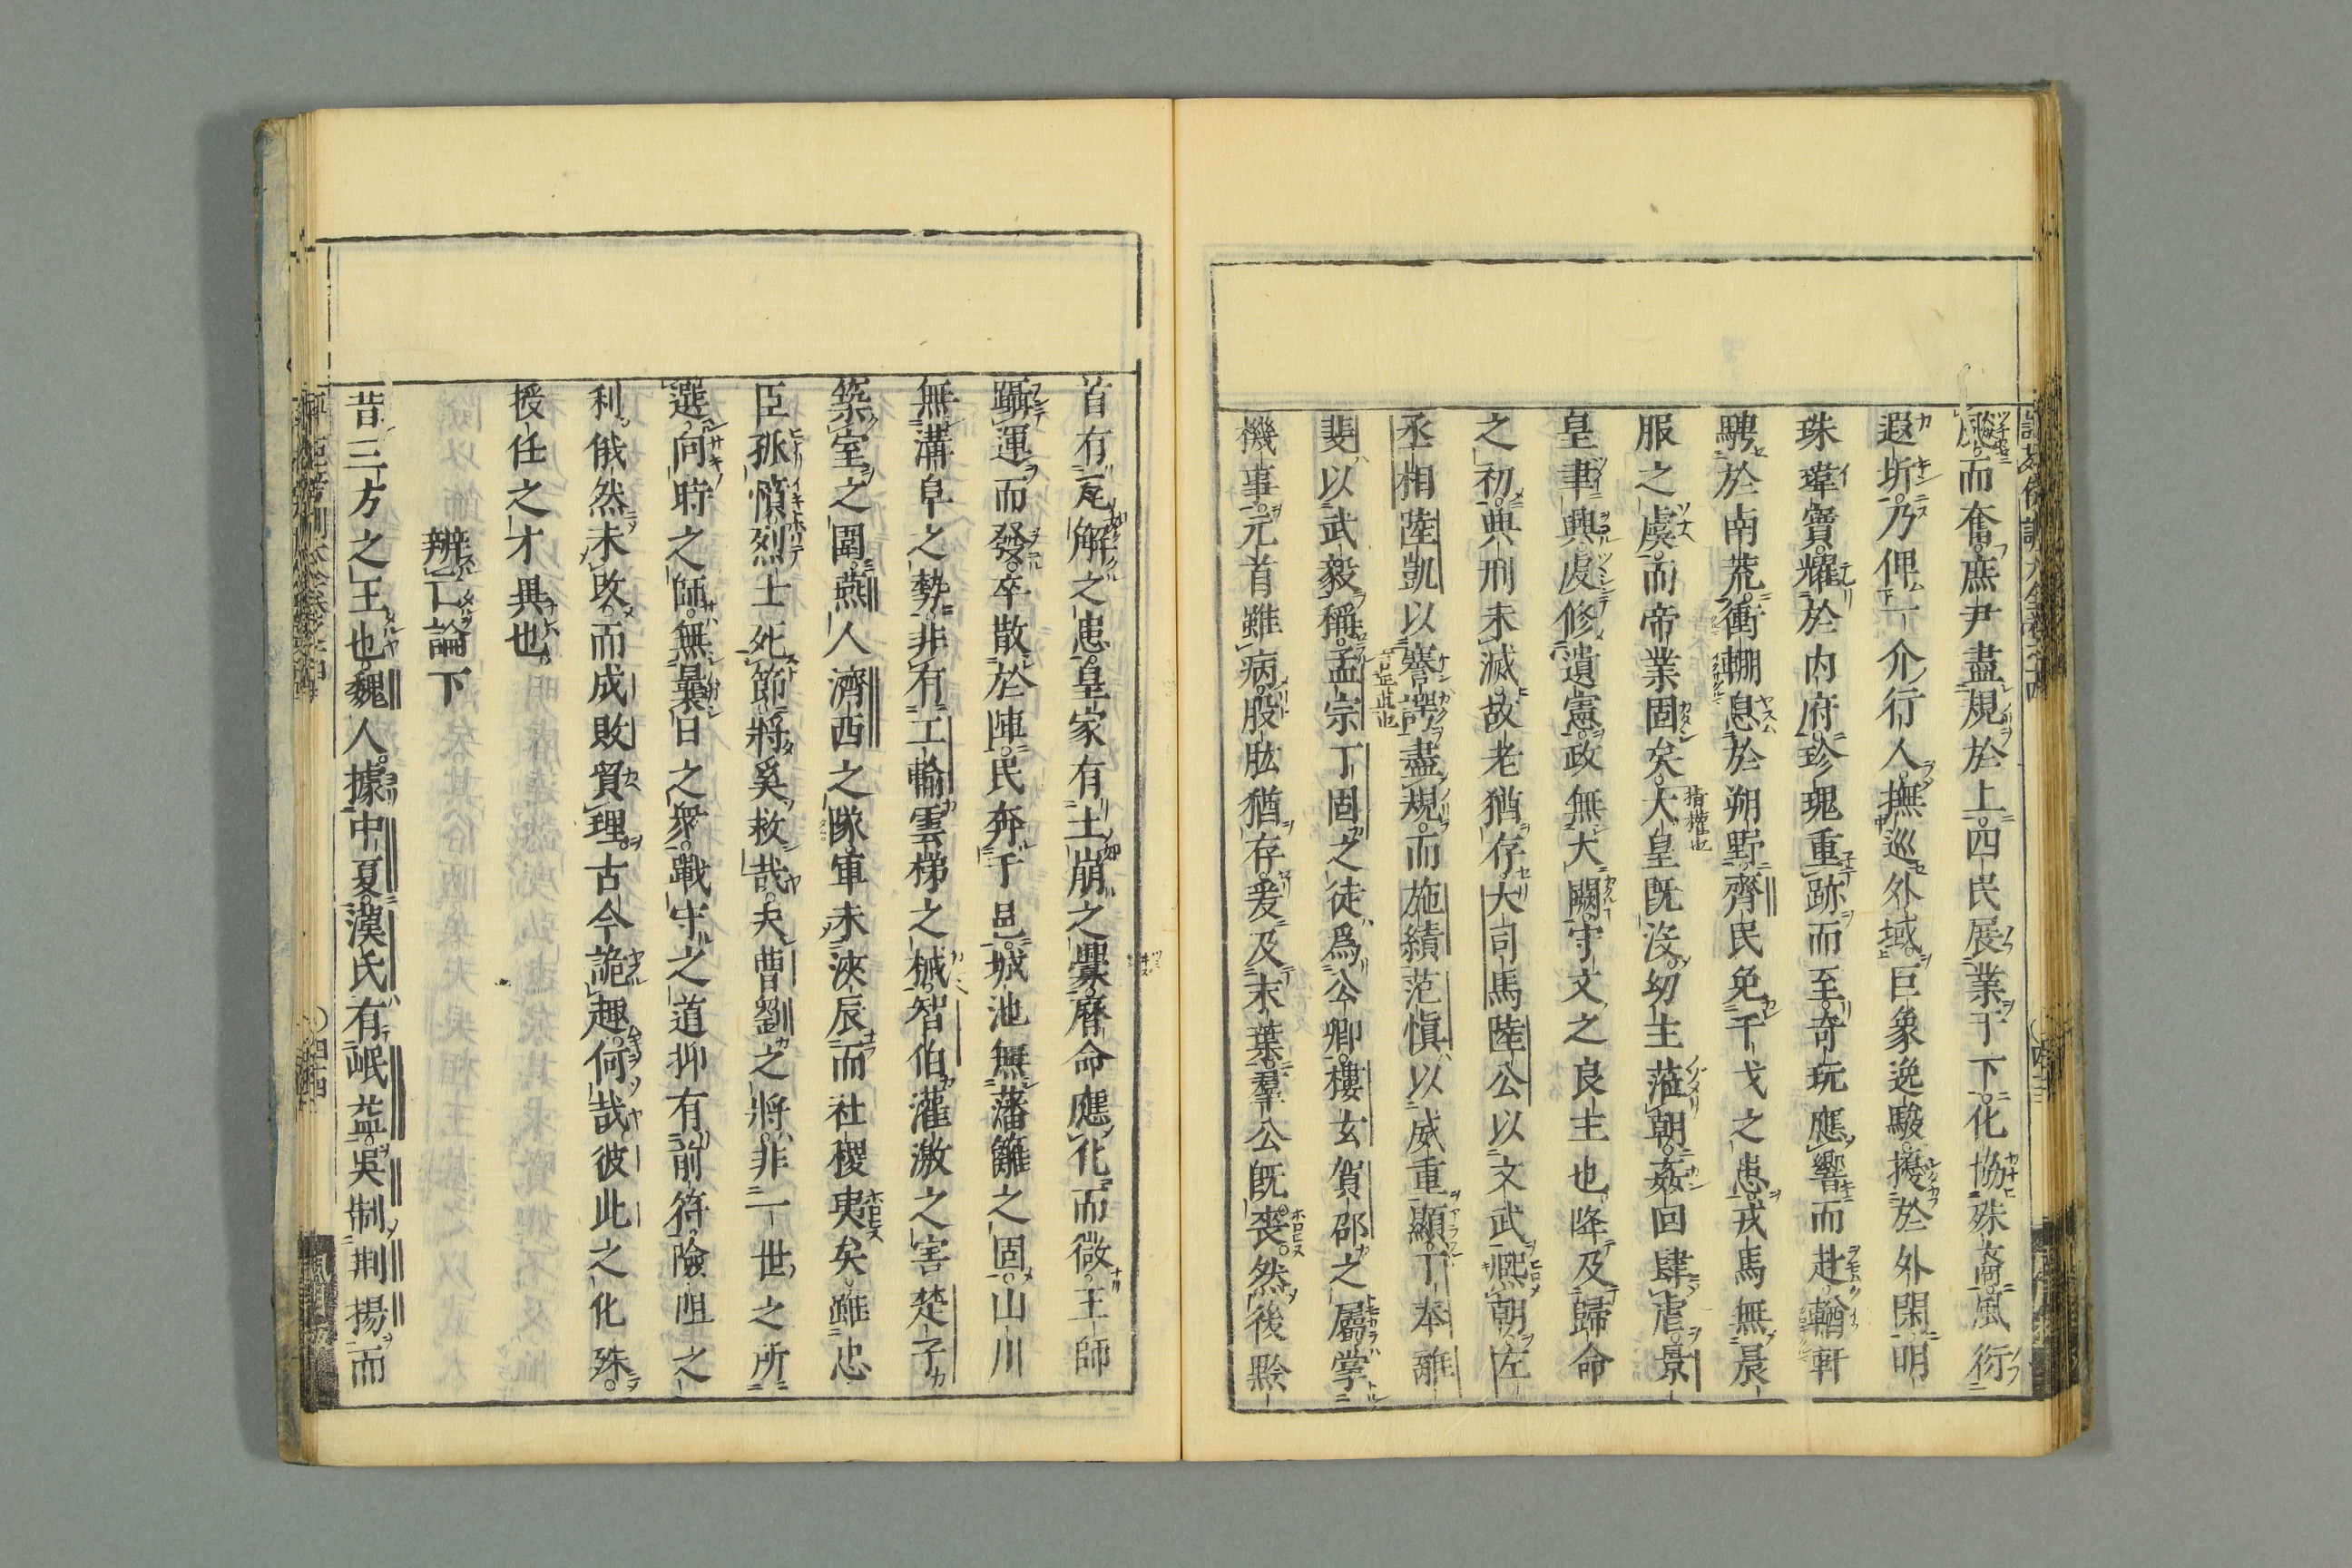 風而奮庶尹盡規於上四民展業于下化協殊裔風衍
遐圻乃俾一介行人撫巡外域巨象逸駿擾於外閑明
珠瑋寶耀於内府珍瑰重跡而至奇玩應響而赴輶軒
騁於南荒衝輣息於朔野齊民免干戈之患戎馬無晨
服之虞而帝業固矣大皇既沒幼主蒞朝姦回肆虐景
皇聿興虔修遺憲政無大闕守文之良主也降及歸命
之初典刑未滅故老猶存大司馬陸公以文武熙朝左
丞相陸凱以謇諤盡規而施績范慎以威重顯丁奉離
斐以武毅稱孟宗丁固之徒爲公卿樓玄賀邵之屬掌
機事元首雖病股肱猶存爰及末葉羣公既喪然後黔
首有瓦解之患皇家有土崩之釁曆命應化而微王師
躡運而發卒散於陣民奔于邑城池無藩籬之固山川
無溝阜之勢非有工輸雲梯之械智伯灌激之害楚子
築室之圍燕人濟西之隊軍未浹辰而社稷夷矣雖忠
臣孤憤烈士死節將奚救哉夫曹劉之將非一世之所
選向時之師無曩日之衆戰守之道抑有前符險阻之
利俄然未改而成敗貿理古今詭趣何哉彼此之化殊
授任之才異也
辨亡論下
昔三方之王也魏人據中夏漢氏有岷益吳制荆揚而